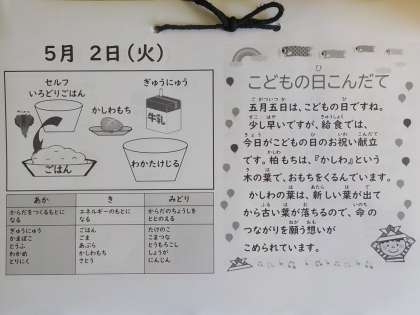 5月 2日(火)
セルフ
いろどりごはん
ぎゅうにゅう
かしわもち
牛乳
ごはん
わかたけじる
あか
き
みどり
からだをつくるもとに
なる
エネルギーのもとに
なる
からだのちょうしを
ととのえる
ぎゅうにゅう
かまぼこ
とうふ
わかめ
とりにく
ごはん
ごま
あぶら
かしわもち
さとう
たけのこ
こまつな
とうもろこし
しょうが
にんじん
こどもの日こんだて
五月五日は、こどもの日ですね。
少し早いですが、給食では、
今日がこどもの日のお祝い献立
です。柏もちは、『かしわ』という
木の葉で、おもちをくるんでいます。
かしわの葉は、新しい葉が出て
から古い葉が落ちるので、命の
つながりを願う想いが
こめられています。